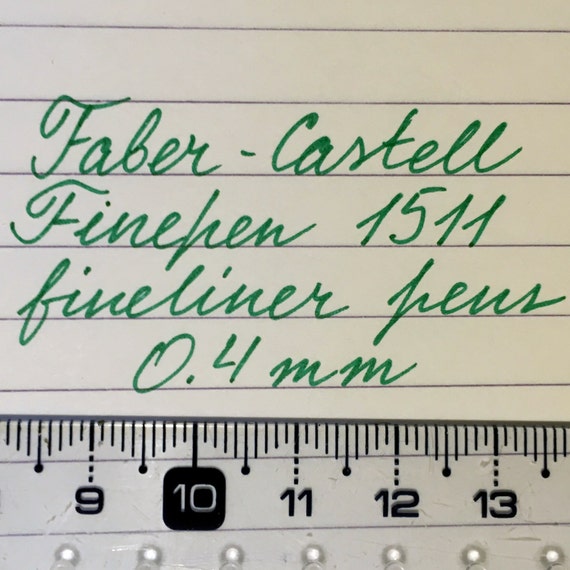 Faber-Castell
Finepen 1511
fineliner pens
0.4 mm
9 10 11 12 13